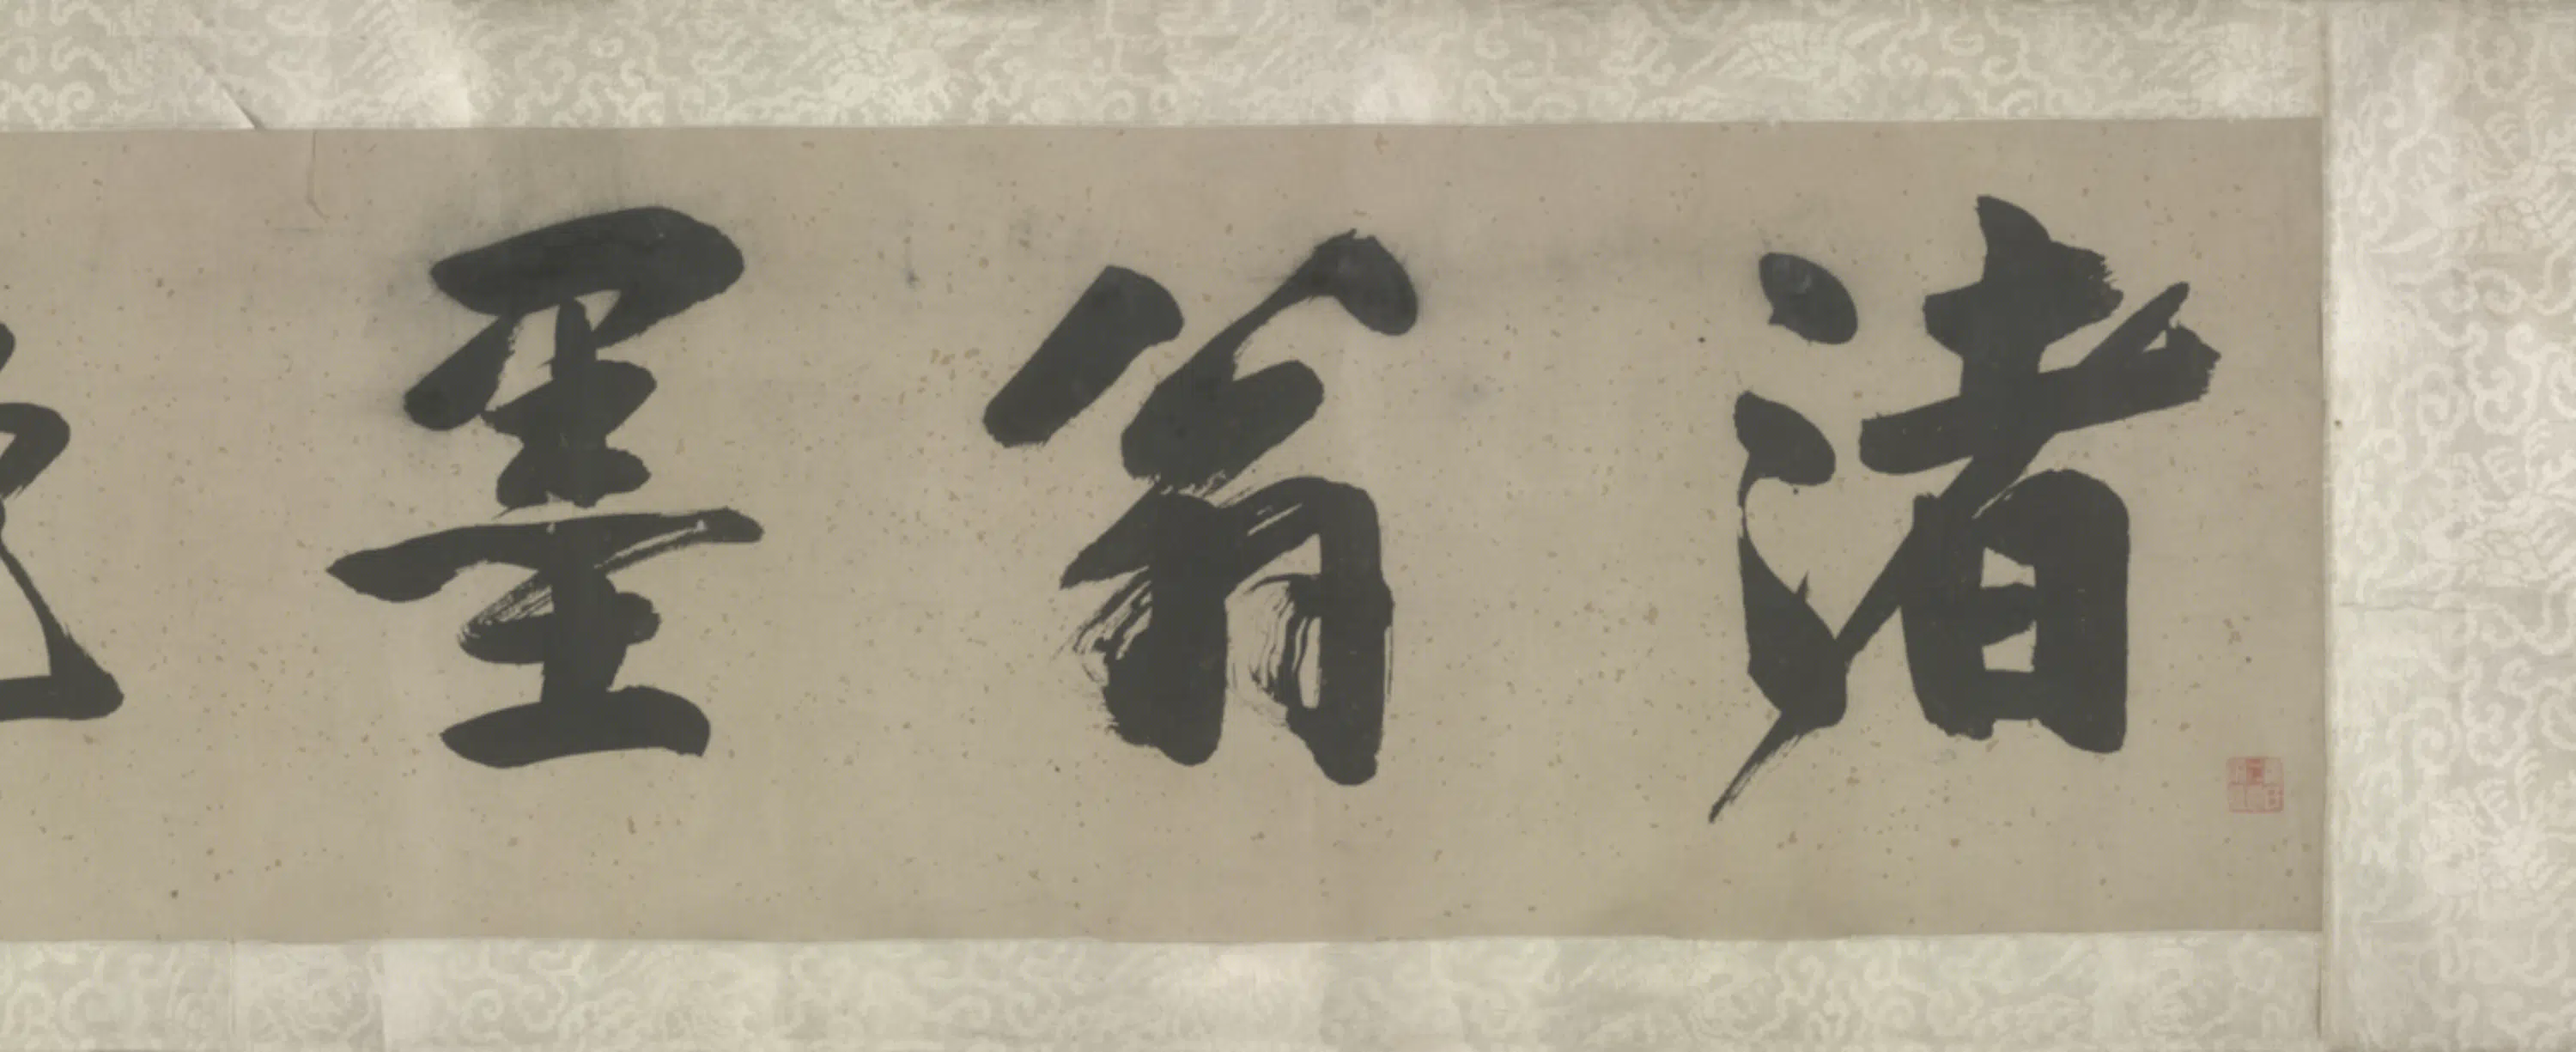 渚翁墨